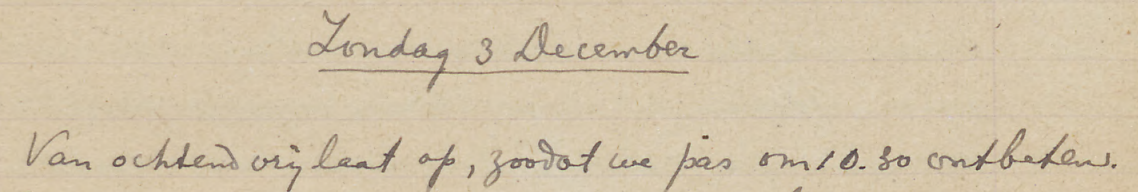 Zondag 3 December
Van ochtend vrij laat op, zoodat we pas om 10.30 ontbeten.